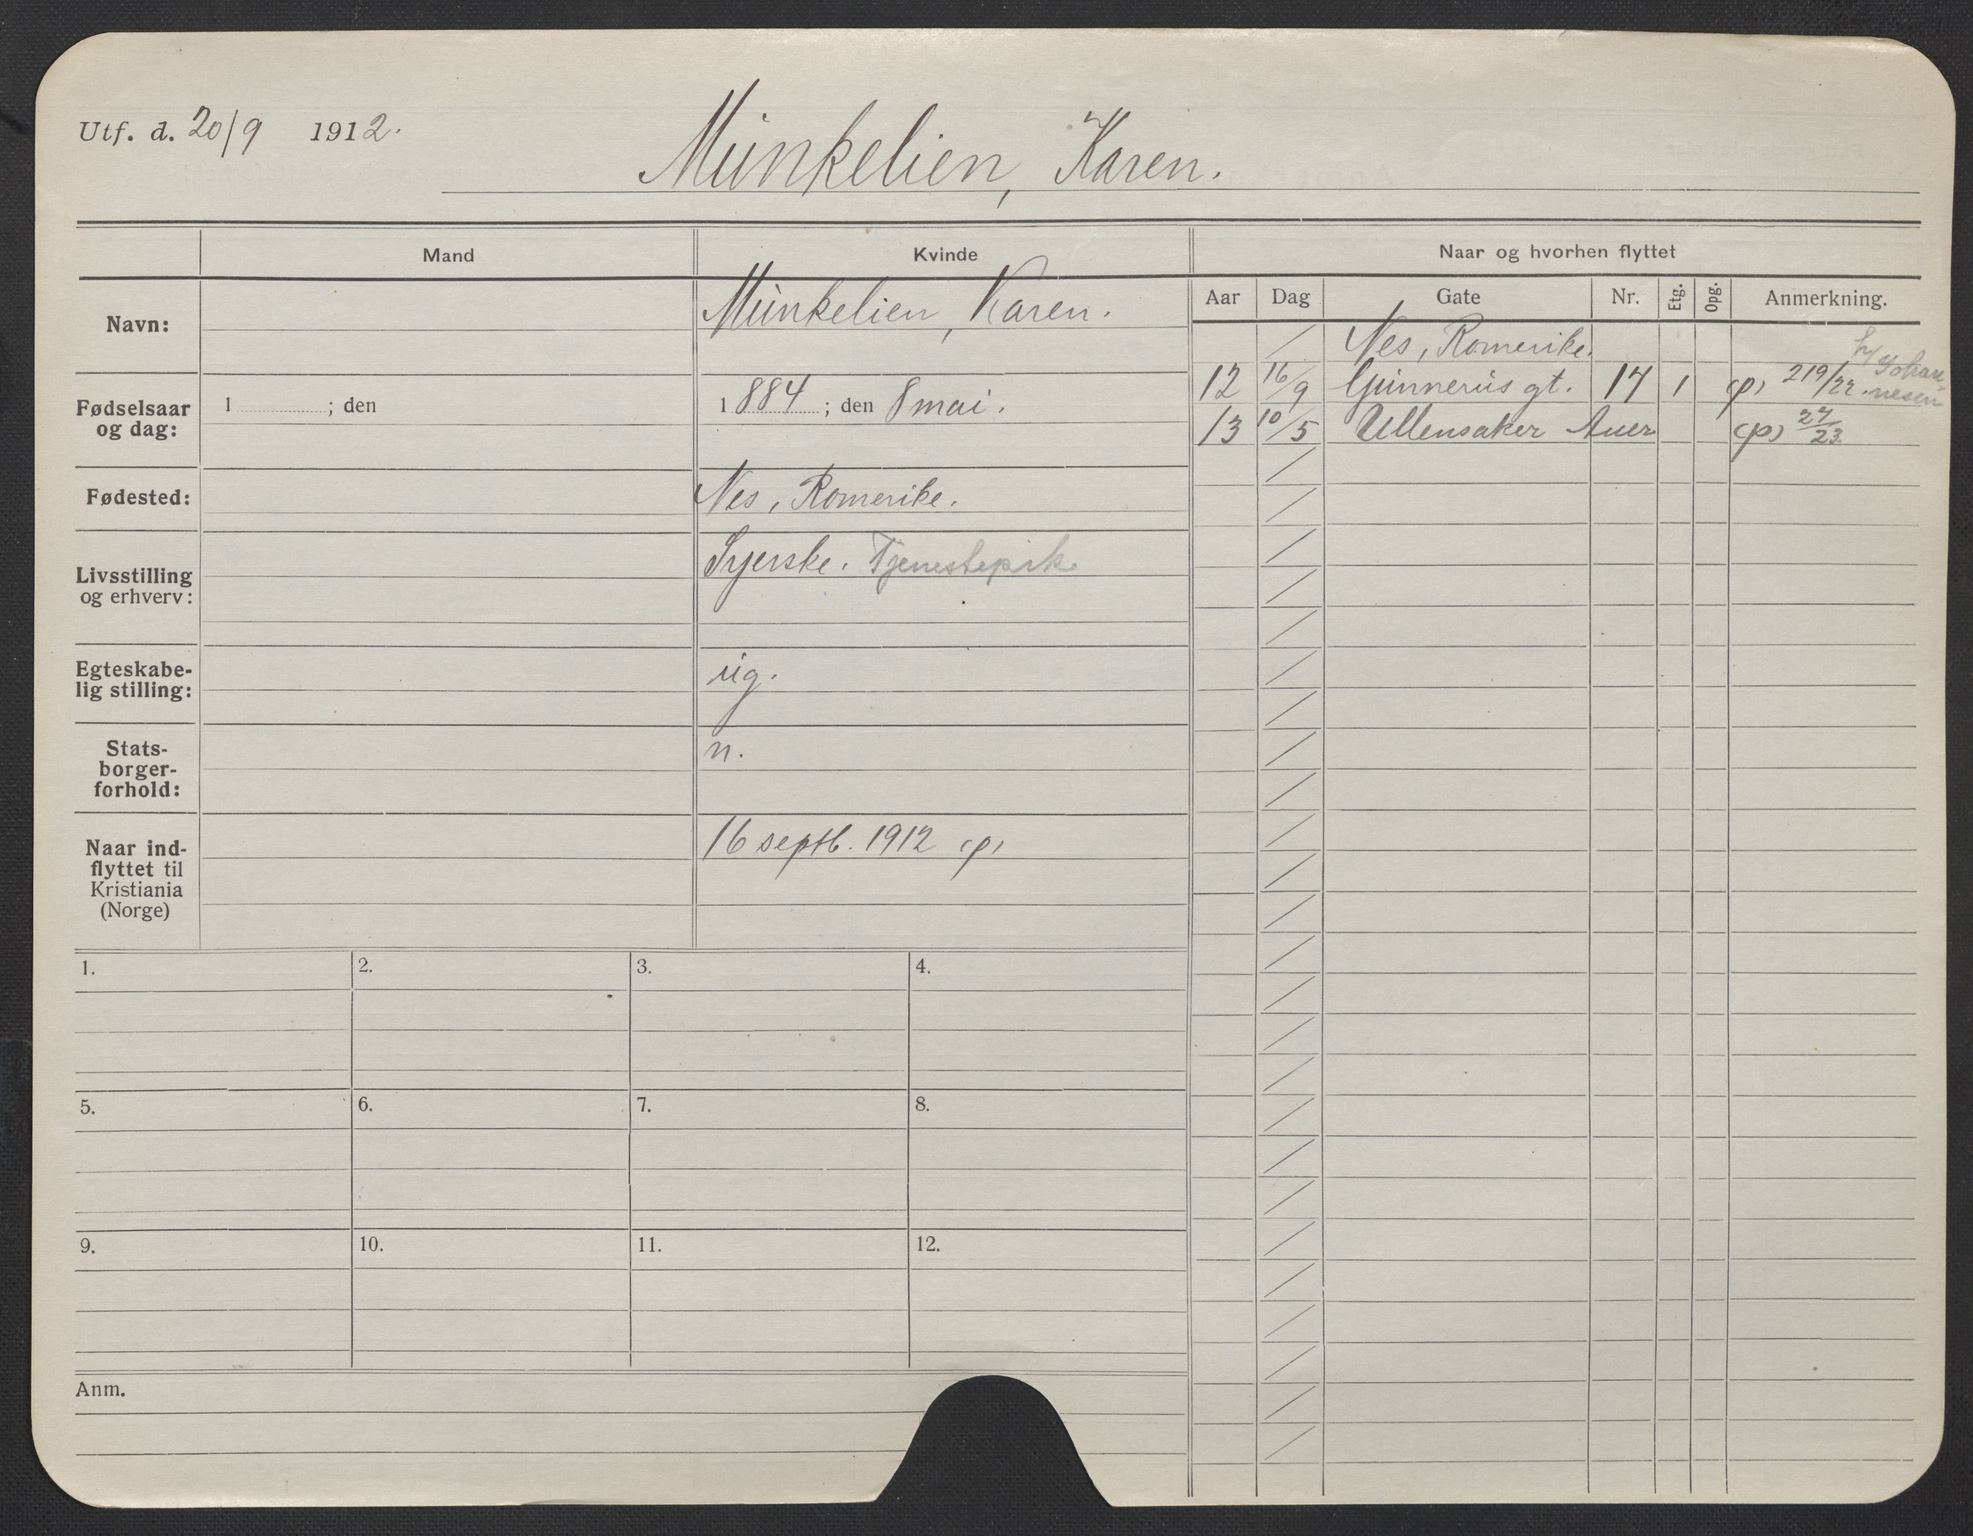 Utf. d. 20/9 1912.
Munkelien, Karen.
Mand
Kvinde
Naar og hvorhen flyttet
Aar Dag Gate Nr. Etg. Opg. Anmerkning.
Navn:
Munkelien, Karen.
Fødselsaar
og dag:
1 ; den
1884 ; den 8 mai.
Fødested:
Nes, Romerike.
Livsstilling
og erhverv:
Syerske. Tjenestepik
Egteskabe-
lig stilling:
ug.
Stats-
borger-
forhold:
n.
Naar ind-
flyttet til
Kristiania
(Norge)
16 septb. 1912 (p)
/ Nes, Romerike.
h/ Johan-
nesen
12 16/9 Gunnerus gt. 17 1 (p) 219/22
13 10/5 Ullensaker Auer (p) 27/23
1.
2.
3.
4.
5.
6.
7.
8.
9.
10.
11.
12.
Anm.